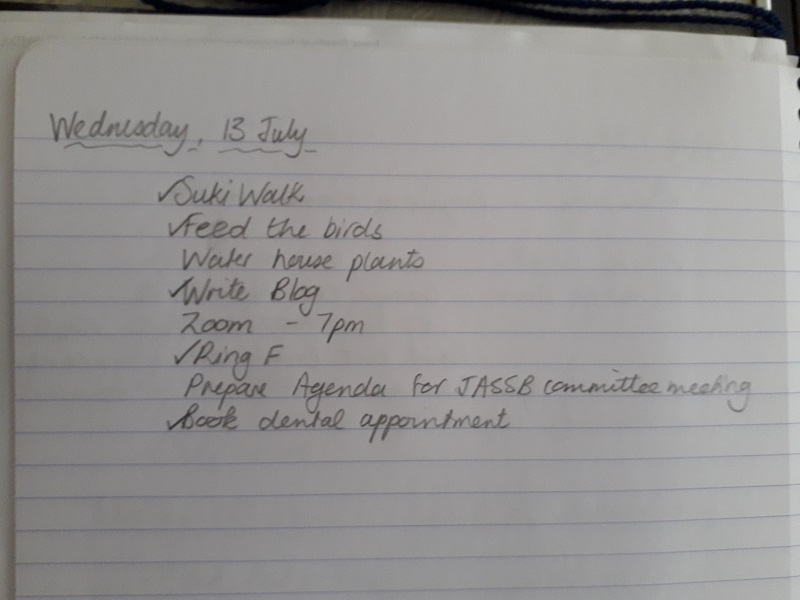 Wednesday, 13 July
✓Suki Walk
✓Feed the birds
Water house plants
✓Write Blog
Zoom - 7pm
✓Ring F
Prepare Agenda for JASSB committee meeting
✓Book dental appointment